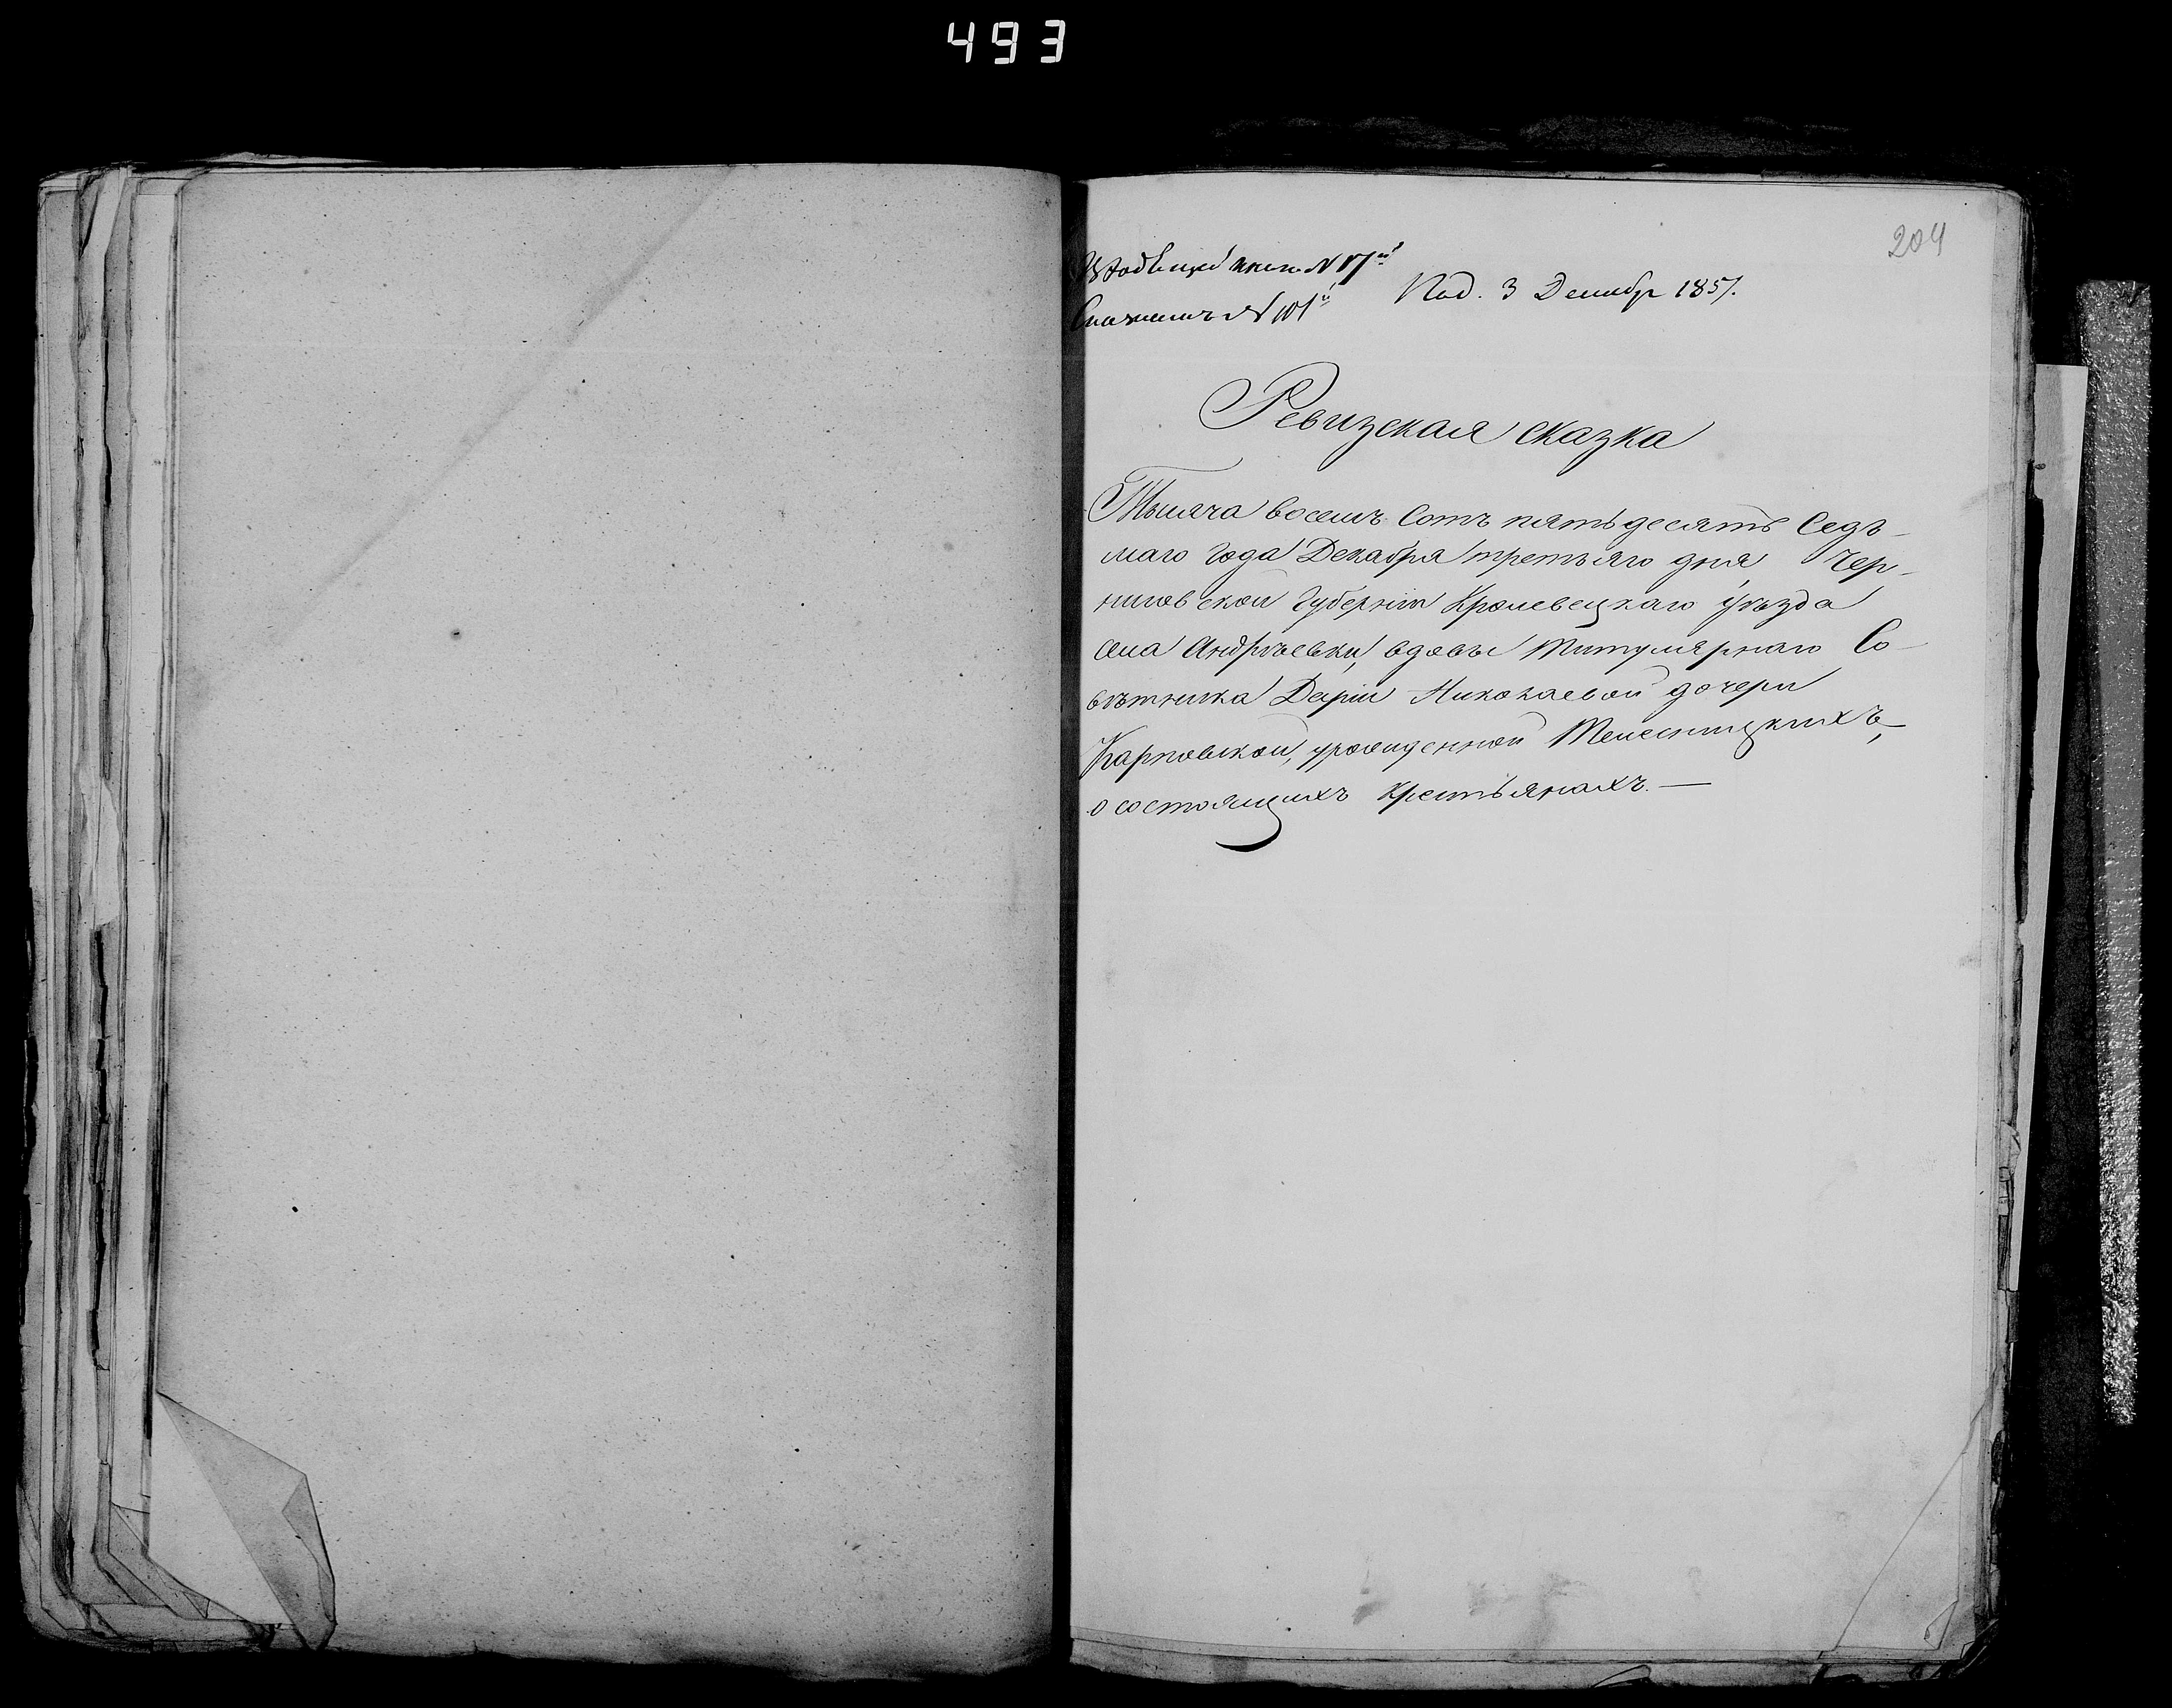 493
204
Входящей книги N 17й
N 101й
Под. 3 Декабр 1857.
Ревизская сказка
Тысяча восемъ сотъ пятьдесятъ седь-
маго года Декабря третьяго дня Чер-
ниговской Губерніи Кролевецкаго уѣзда
села Андрѣевки, вдовы титулярнаго Со-
вѣтника Даріи Николаевой дочери
Карповской, урожденной
о состоящихъ крестьянахъ.—